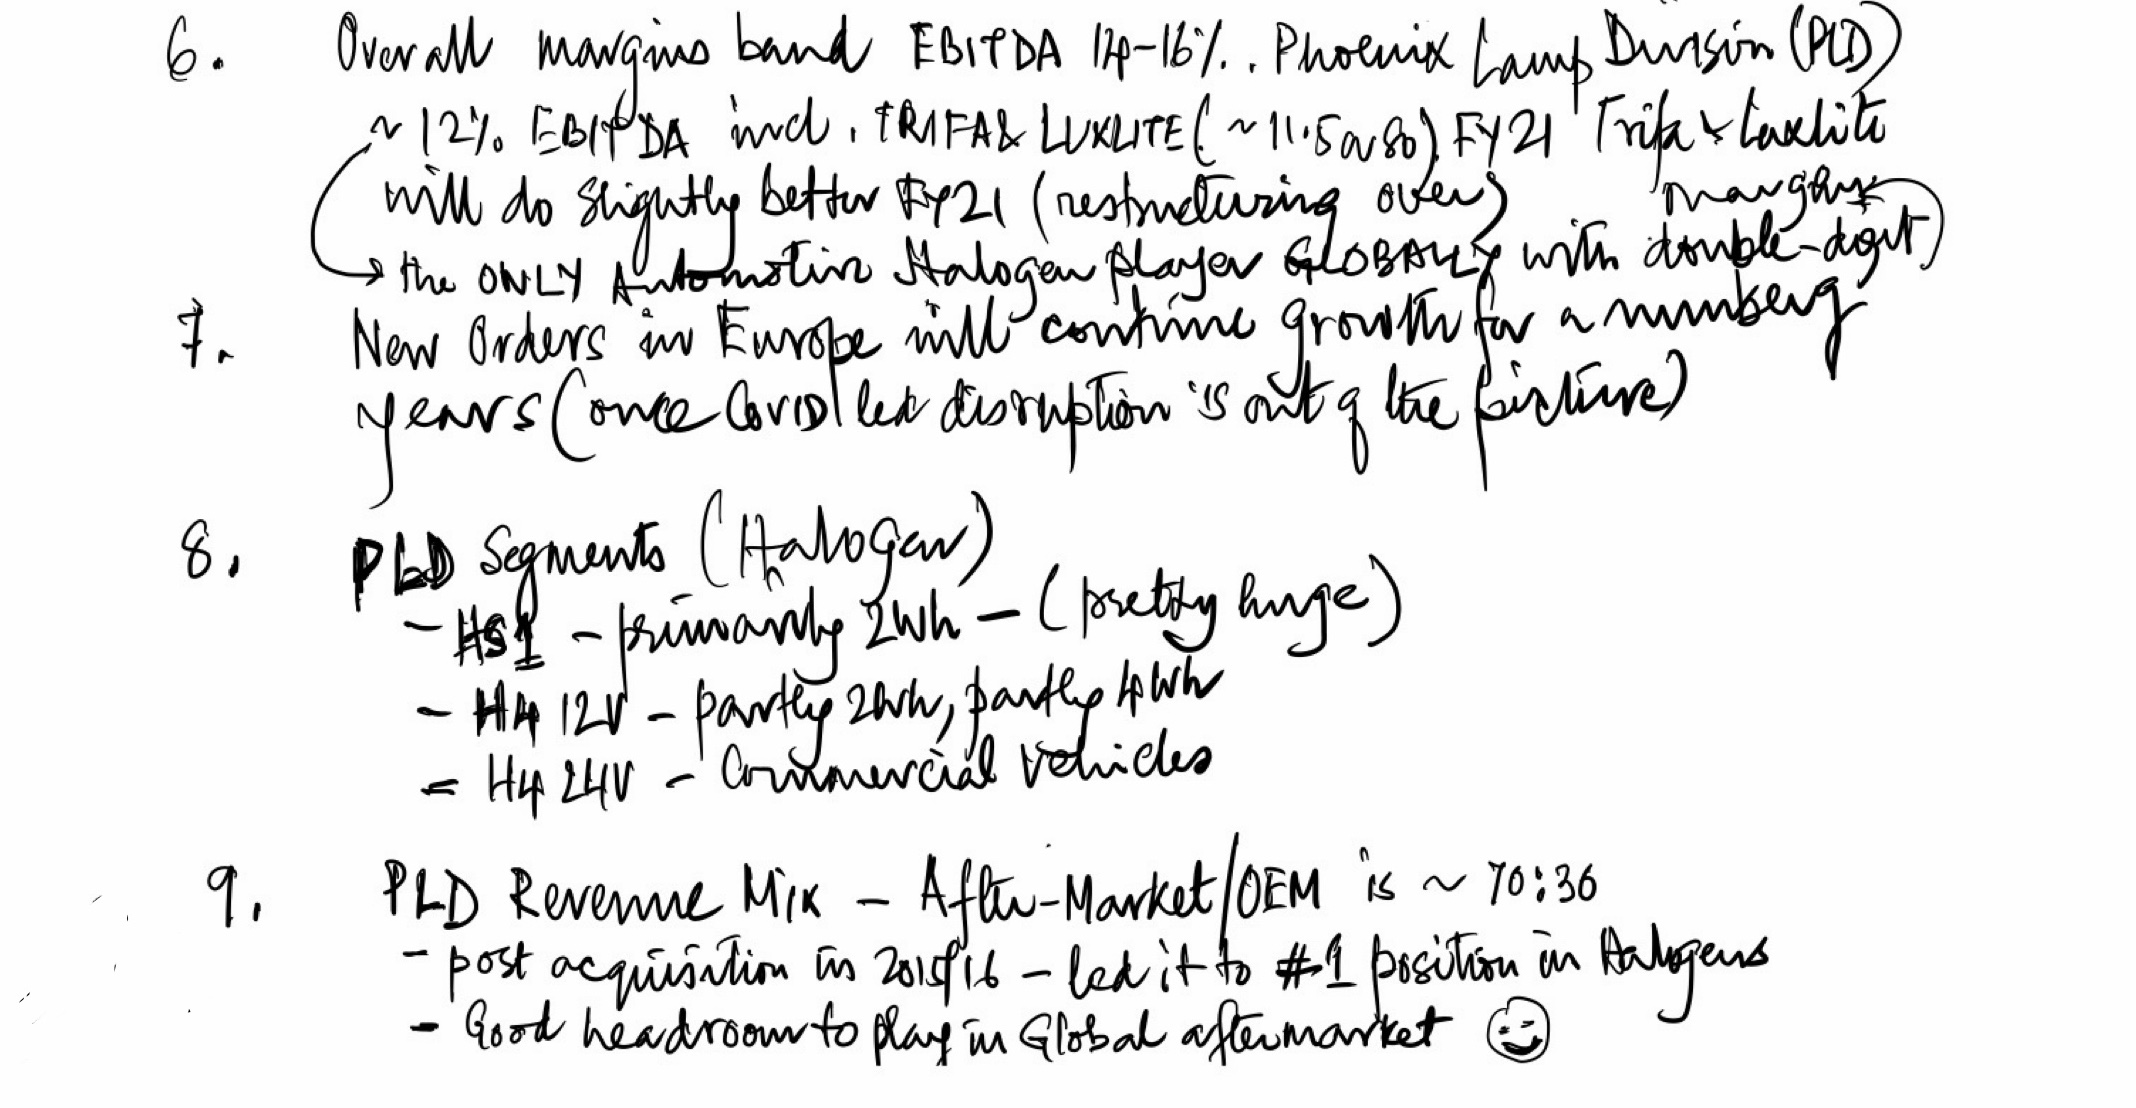 6. Overall margins band EBITDA 14-16%. Phoenix Lamp Division (PLD)
~12% EBITDA incl. TRIFA & LUXLITE (~11.5 or so). FY21 Trifa & Luxlite
will do slightly better FY21 (restructuring over)
→ the ONLY Automotive Halogen player GLOBALLY with double-digit
margins
7. New Orders in Europe will continue growth for a number of
years (once Covid led disruption is out of the picture)
8. PLD Segments (Halogen)
- HS1 - primarily 2Wh - (pretty huge)
- H4 12V - partly 2Wh, partly 4Wh
= H4 24V - Commercial Vehicles
9. PLD Revenue Mix - After-Market/OEM is ~ 70:30
- post acquisition in 2015/16 - led it to #1 position in Halogens
- Good headroom to play in Global aftermarket